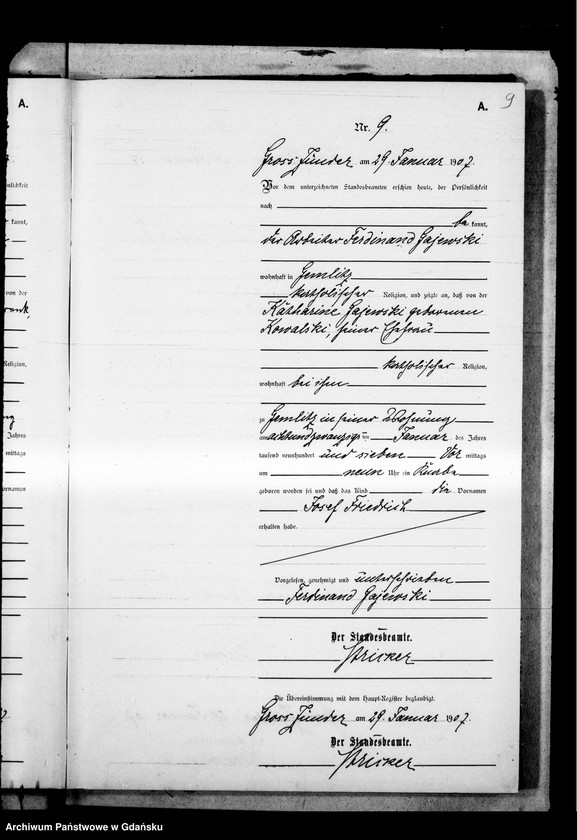 A.
A.
9
Nr. 9.
Gross Zünder am 29. Januar 1907.
Vor dem unterzeichneten Standesbeamten erschien heute, der Persönlichkeit
nach
be kannt,
der Arbeiter Ferdinand Gajewski
wohnhaft in Gemlitz
katholischer Religion, und zeigte an, daß von der
Katharine Gajewski geborenen
Kowalski, seiner Ehefrau
katholischer Religion,
wohnhaft bei ihm
zu Gemlitz in seiner Wohnung
am achtundzwanzigsten Januar des Jahres
tausend neunhundert und sieben Vor mittags
um neun Uhr ein Knabe
geboren worden sei und daß das Kind die Vornamen
Josef Friedrich
erhalten habe.
Vorgelesen, genehmigt und unterschrieben
Ferdinand Gajewski
Der Standesbeamte.
Stricker
Die Übereinstimmung mit dem Haupt-Register beglaubigt.
Gross Zünder am 29. Januar 1907.
Der Standesbeamte.
Stricker
Archiwum Państwowe w Gdańsku